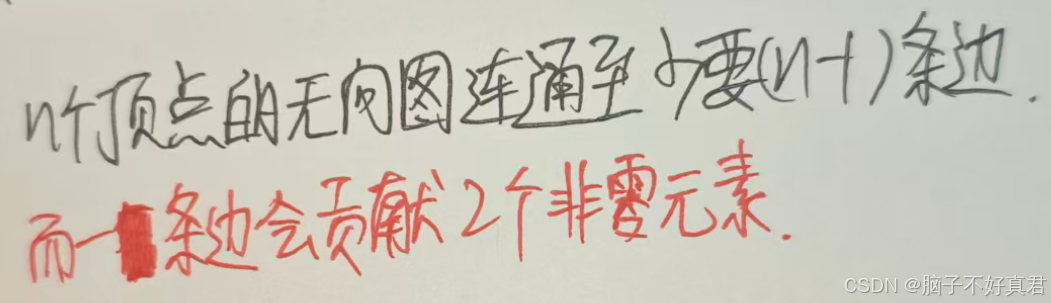 n个顶点的无向图连通至少要(n-1)条边.
而一条边会贡献2个非零元素.
CSDN @脑子不好真君